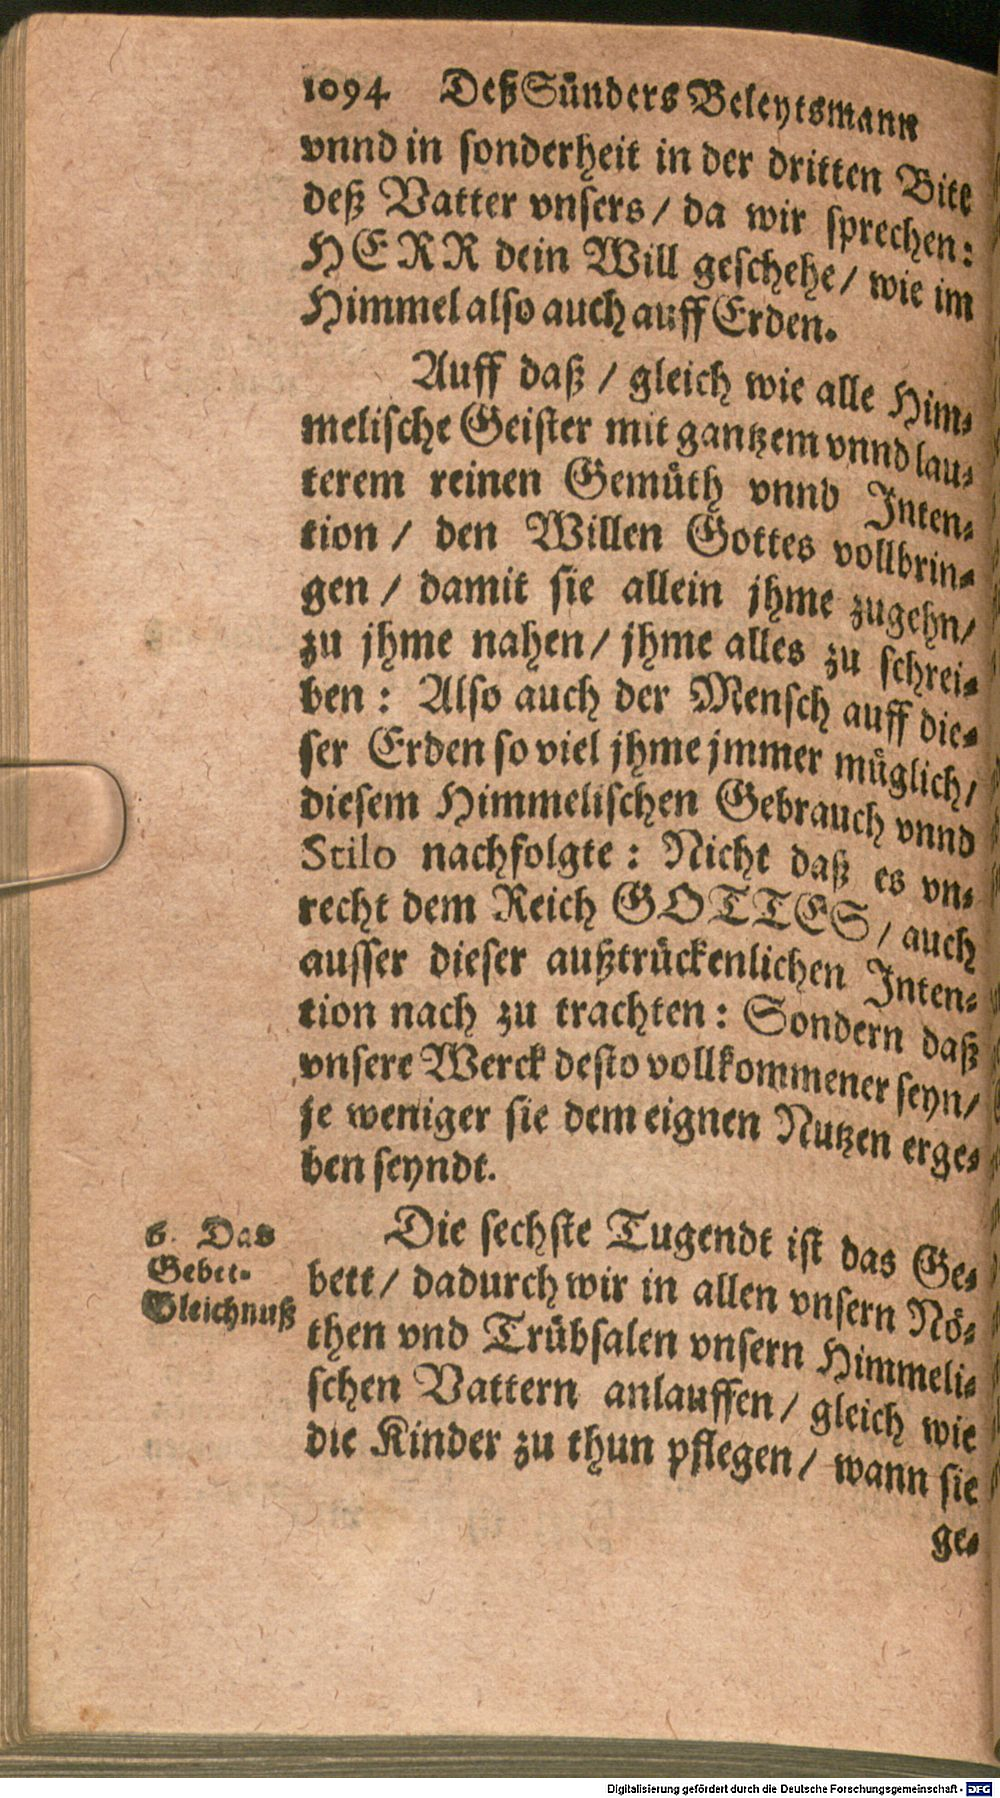 1094 Deß Sünders Beleytsmann
vnnd in sonderheit in der dritten Bitt
deß Vatter vnsers / da wir sprechen:
HERR dein Will geschehe / wie im
Himmel also auch auff Erden.
Auff daß / gleich wie alle Him-
melische Geister mit gantzem vnnd lau-
terem reinen Gemüth vnnd Inten-
tion / den Willen Gottes vollbrin-
gen / damit sie allein jhme zugehn /
zu jhme nahen / jhme alles zu schrei-
ben: Also auch der Mensch auff die-
ser Erden so viel jhme jmmer müglich /
diesem Himmelischen Gebrauch vnnd
Stilo nachfolgte: Nicht daß es vn-
recht dem Reich GOTTES / auch
ausser dieser außtrückenlichen Inten-
tion nach zu trachten: Sondern daß
vnsere Werck desto vollkommener seyn /
je weniger sie dem eignen Nutzen erge-
ben seyndt.
6. Das
Gebet-
Gleichnuß
Die sechste Tugendt ist das Ge-
bett / dadurch wir in allen vnsern Nö-
then vnd Trübsalen vnsern Himmeli-
schen Vattern anlauffen / gleich wie
die Kinder zu thun pflegen / wann sie
ge-
Digitalisierung gefördert durch die Deutsche Forschungsgemeinschaft - DFG